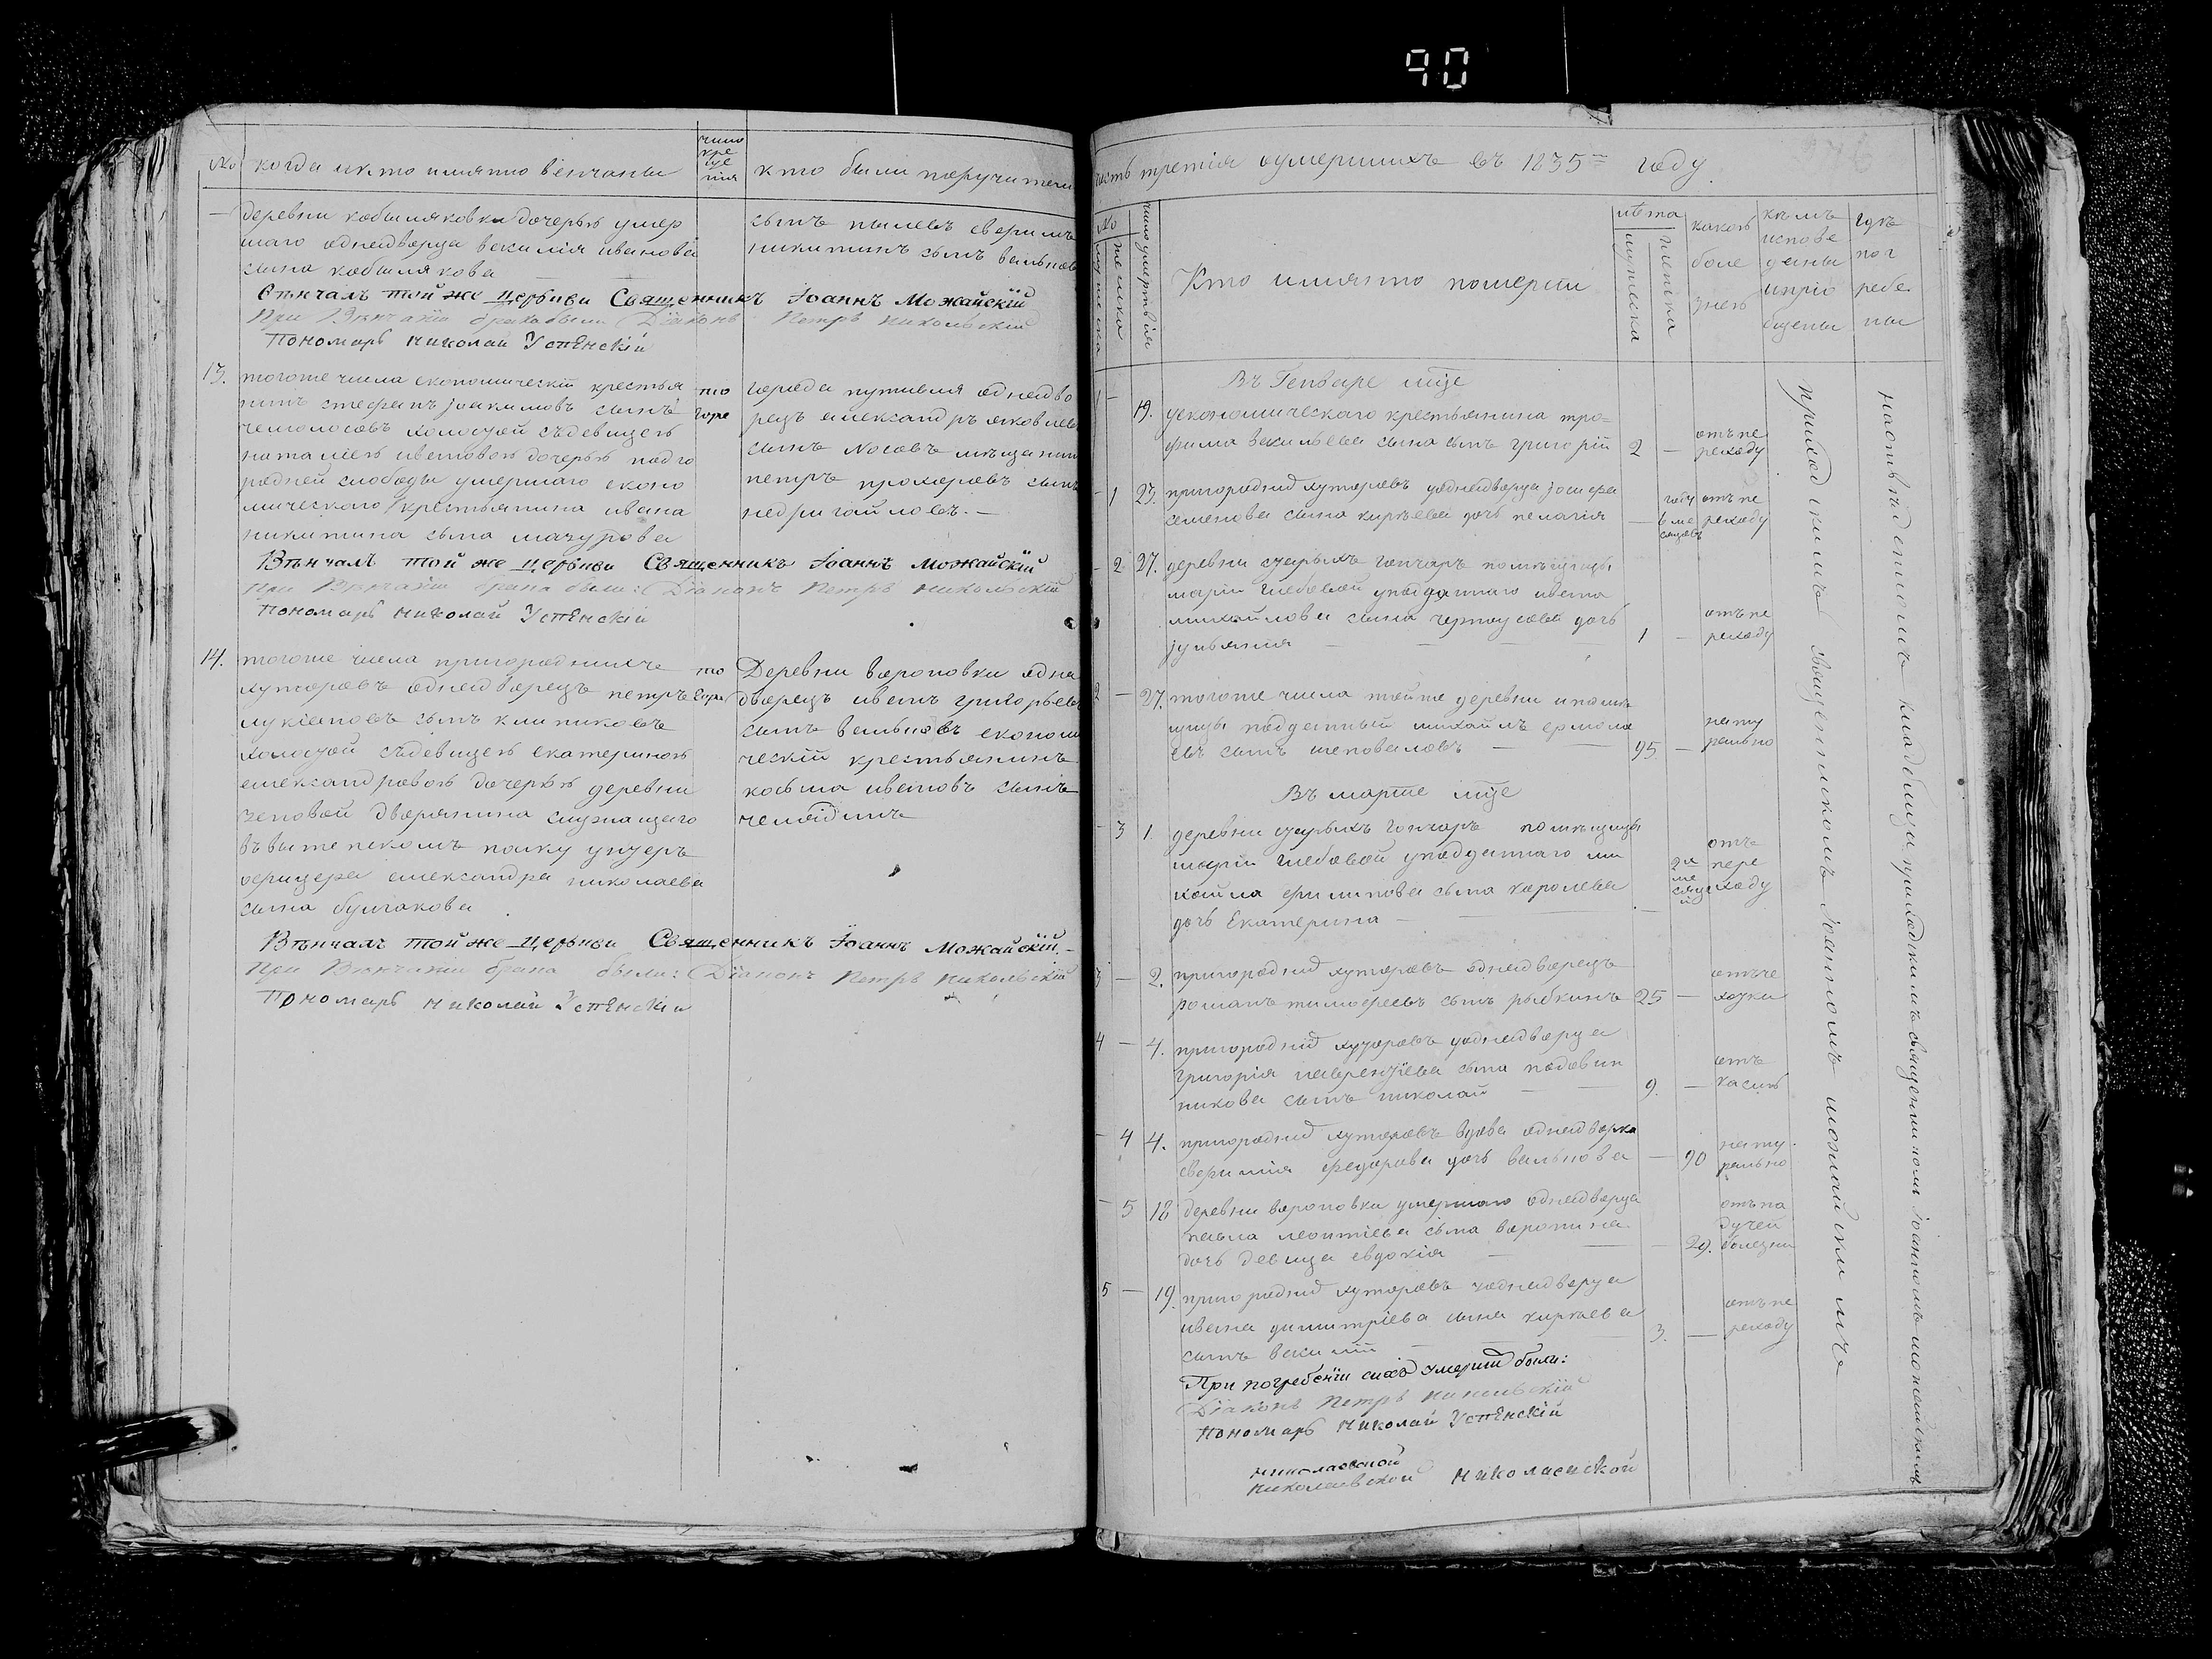 90
№ когда и кто имянно венчаны
число кре ще ния
кто были поручители
деревни кобыляковки дочерью умер
шаго однодворца василія иванова
сына кобылякова
сынъ
никитинъ сынъ
Венчалъ той же церькви Священникъ Іоаннъ Можайскій
При Венчаніи брака были Діаконъ Петръ Никольскій
Пономарь Николай Успенскій
13. тогоже числа економическій крестья
нинъ стефанъ іоакимовъ сынъ
холостой съдевицею
наталіею ивановою дочерью подго
родней слободы умершаго еконо
мическаго крестьянина ивана
никитина сына мачурова
то
горо
города путивля однодво
рецъ александръ яковлевъ
сынъ Носовъ мещанин
петръ прохоровъ сынъ
недригайловъ. —
Венчалъ той же церькви Священникъ Іоаннъ Можайскій
При Венчаніи брака были: Діаконъ Петръ Никольскій
Пономарь Николай Успенскій
14. тогоже числа пригороднихъ
хуторовъ однодворецъ петръ
лукіановъ сынъ клиниковъ
холостой съдевицею екатериною
александровою дочерью деревни
зеновой дворянина служащаго
въвитепскомъ полку ундеръ
офицера александра николаева
сына булгакова
то
Деревни вороновки одно
дворецъ иванъ григорьевъ
сынъ вальновъ економи
ческій крестьянинъ
косьма ивановъ сынъ
Венчалъ той же церькви Священникъ Іоаннъ Можайскій. —
При Венчаніи брака были: Діаконъ Петръ Никольскій
Пономарь Николай Успенскій
часть третія оумершихъ въ 1835м году.
№
мужеска
женска
число умертвія
Кто имянно померли
лета
мужеска
женска
какою
боле
знею
кемъ
испове
даны
ипріо
бщены
где
пог
ребе
ны
Въ Генваре мце
1 — 19. уекономическаго крестьянина тро=
фима васильева сына сынъ григорій 2 — отъ пе
реходу
— 1 23. пригородних хуторовъ уоднодворца іосифа
семенова сына киреева дочь пелагія — году 6 ме
сяцовъ
отъ пе
реходу
— 2 27. деревни старыхъ гончаръ помещицы
маріи глебовой уподданнаго ивана
михайлова сына черноусова дочь
іуліанія — 1 — отъ пе
реходу
2 — 27. тогоже числа тойже деревни ипоме
щицы подданный михаилъ ермола
евъ сынъ шеповаловъ — 95 — нату
рально
Въ марте мце
— 3 1. деревни старыхъ гончаръ помещицы
маріи глебовой уподданнаго ми
хайла филипова сына королева
дочь Екатерина —
отъ
пере
ходу
3 — 2. пригородних хуторовъ однодворецъ
романъ тимофеевъ сынъ рыбкинъ 25 — отъ че
хотки
4 — 4. пригородних хуторовъ уоднодворца
григорія лаврентіева сына
сынъ николай — 9. — отъ
кашля
— 4 4. пригородних хуторовъ вдова однодворка
федорова дочь вальнова — 90 нату
рально
— 5 18 деревни вороновки умершаго однодворца
павла леонтіева сына воронина
дочь девица евдокія — 29. отъ па
дучей
болезни
5 — 19. пригородних хуторовъ уоднодворца
ивана димитріева сына киреева
сынъ василій — 3. — отъ пе
реходу
При погребеніи сихъ умерших были:
Діаконъ Петръ Никольскій
Пономарь Николай Успенскій
николаевской
николаевской Николаевской
приходскимъ священникомъ Іоанномъ можайскимъ
приходскимъ священникомъ іоанномъ можайскимъ